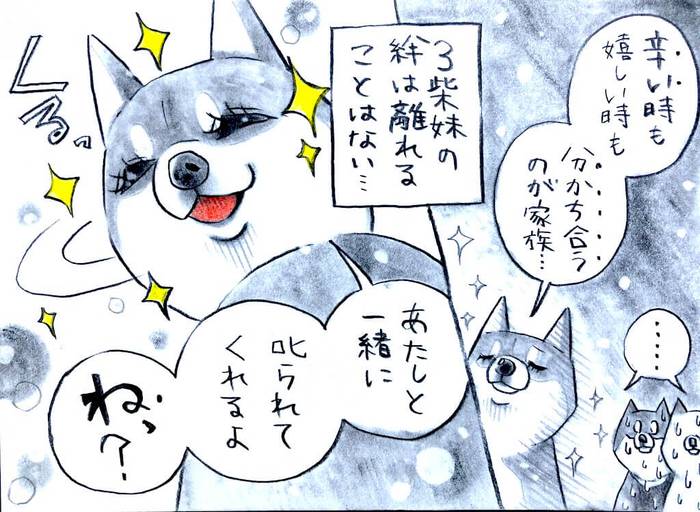 辛い時も
嬉しい時も
分かち合う
のが家族…
……
3柴妹の
絆は離れる
ことはない…
くるっ
あたしと
一緒に
叱られて
くれるよ
ねっ?